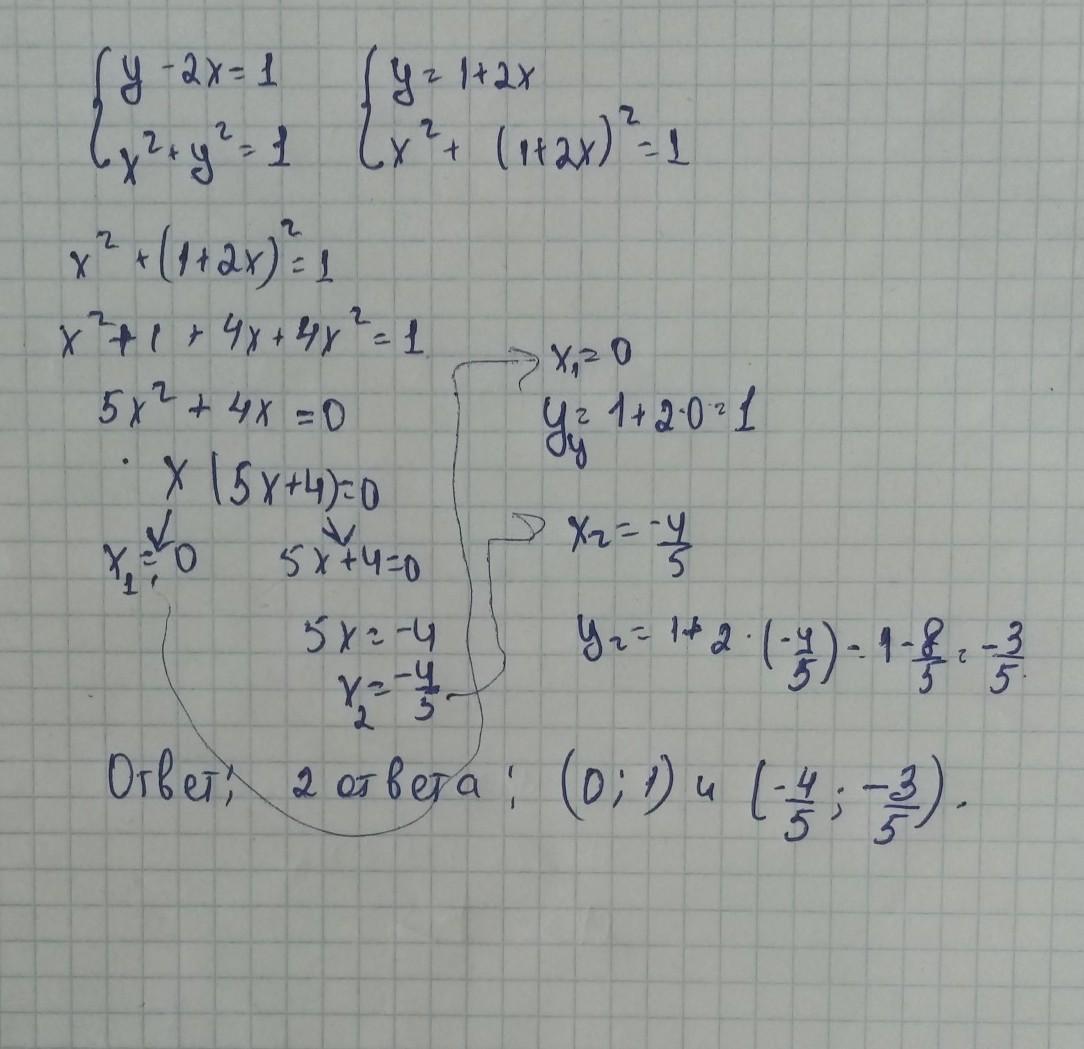 { y - 2x = 1 { y = 1 + 2x
{ x² + y² = 1 { x² + (1+2x)² = 1
x² + (1+2x)² = 1
x² + 1 + 4x + 4x² = 1
5x² + 4x = 0
x (5x+4) = 0
x₁ = 0 5x+4=0
5x = -4
x₂ = -4/5
x₁ = 0
y = 1 + 2·0 = 1
x₂ = -4/5
y₂ = 1 + 2 · (-4/5) = 1 - 8/5 = -3/5
Ответ: 2 ответа : (0; 1) и (-4/5 ; -3/5).